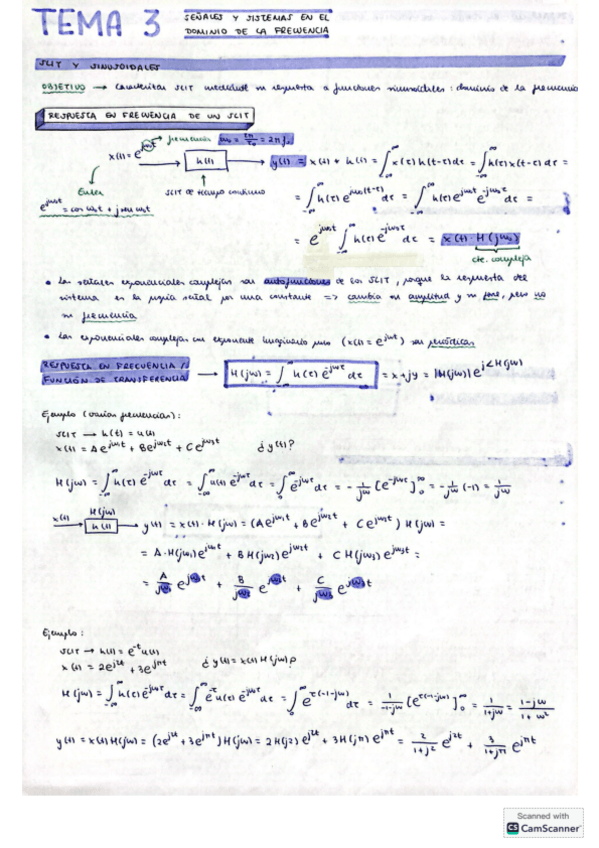 TEMA 3 SEÑALES Y SISTEMAS EN EL
DOMINIO DE LA FRECUENCIA
SLIT Y SINUSOIDALES
OBJETIVO → Caracterizar SLIT mediante su respuesta a funciones sinusoidales : dominio de la frecuencia
RESPUESTA EN FRECUENCIA DE UN SLIT
frecuencia ω₀ = 2π/T₀ = 2πf₀
x(t) = e^{jω₀t} → h(t) → y(t) = x(t) * h(t) = ∫_{-∞}^{∞} x(τ) h(t-τ) dτ = ∫_{-∞}^{∞} h(τ) x(t-τ) dτ =
Euler
SLIT de tiempo continuo
e^{jω₀t} = cos ω₀t + j sen ω₀t
= ∫_{-∞}^{∞} h(τ) e^{jω₀(t-τ)} dτ = ∫_{-∞}^{∞} h(τ) e^{jω₀t} e^{-jω₀τ} dτ =
= e^{jω₀t} ∫_{-∞}^{∞} h(τ) e^{-jω₀τ} dτ = x(t) · H(jω₀)
cte. compleja
• Las señales exponenciales complejas son autofunciones de los SLIT, porque la respuesta del
sistema es la propia señal por una constante => cambia su amplitud y su fase, pero no
su frecuencia
• Las exponenciales complejas con exponente imaginario puro (x(t) = e^{jω₀t}) son periódicas
RESPUESTA EN FRECUENCIA /
FUNCIÓN DE TRANSFERENCIA → H(jω) = ∫_{-∞}^{∞} h(τ) e^{-jωτ} dτ = x + jy = |H(jω)| e^{j∠H(jω)}
Ejemplo (varias frecuencias) :
SLIT → h(t) = u(t)
x(t) = A e^{jω₁t} + B e^{jω₂t} + C e^{jω₃t} ¿ y(t) ?
H(jω) = ∫_{-∞}^{∞} h(τ) e^{-jωτ} dτ = ∫_{-∞}^{∞} u(τ) e^{-jωτ} dτ = ∫_{0}^{∞} e^{-jωτ} dτ = - 1/jω [e^{-jωτ}]₀^∞ = - 1/jω (-1) = 1/jω
x(t) → H(jω) h(t) → y(t) = x(t) · H(jω) = (A e^{jω₁t} + B e^{jω₂t} + C e^{jω₃t}) H(jω) =
= A · H(jω₁) e^{jω₁t} + B H(jω₂) e^{jω₂t} + C H(jω₃) e^{jω₃t} =
= A/jω₁ e^{jω₁t} + B/jω₂ e^{jω₂t} + C/jω₃ e^{jω₃t}
Ejemplo :
SLIT → h(t) = e^{-t} u(t)
x(t) = 2e^{j2t} + 3e^{jπt} ¿ y(t) = x(t) H(jω) ?
H(jω) = ∫_{-∞}^{∞} h(τ) e^{-jωτ} dτ = ∫_{-∞}^{∞} e^{-τ} u(τ) e^{-jωτ} dτ = ∫_{0}^{∞} e^{τ(-1-jω)} dτ = 1/(-1-jω) [e^{τ(-1-jω)}]₀^∞ = 1/(1+jω) = (1-jω)/(1+ω²)
y(t) = x(t) H(jω) = (2e^{j2t} + 3e^{jπt}) H(jω) = 2H(j2) e^{j2t} + 3H(jπ) e^{jπt} = 2/(1+j2) e^{j2t} + 3/(1+jπ) e^{jπt}
Scanned with
CS CamScanner